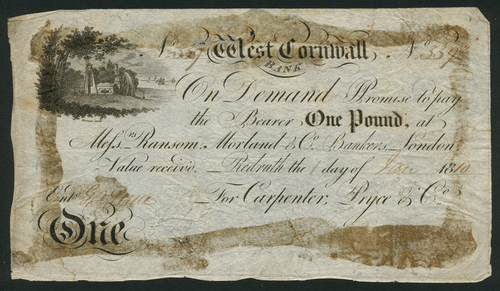 No West Cornwall No
BANK
On Demand Promise to pay
the Bearer One Pound, at
Messrs Ransom, Morland & Co. Bankers London
Value receiv'd. Redruth the 1 day of 1810
Entd For Carpenter, Pryce & Co.
One